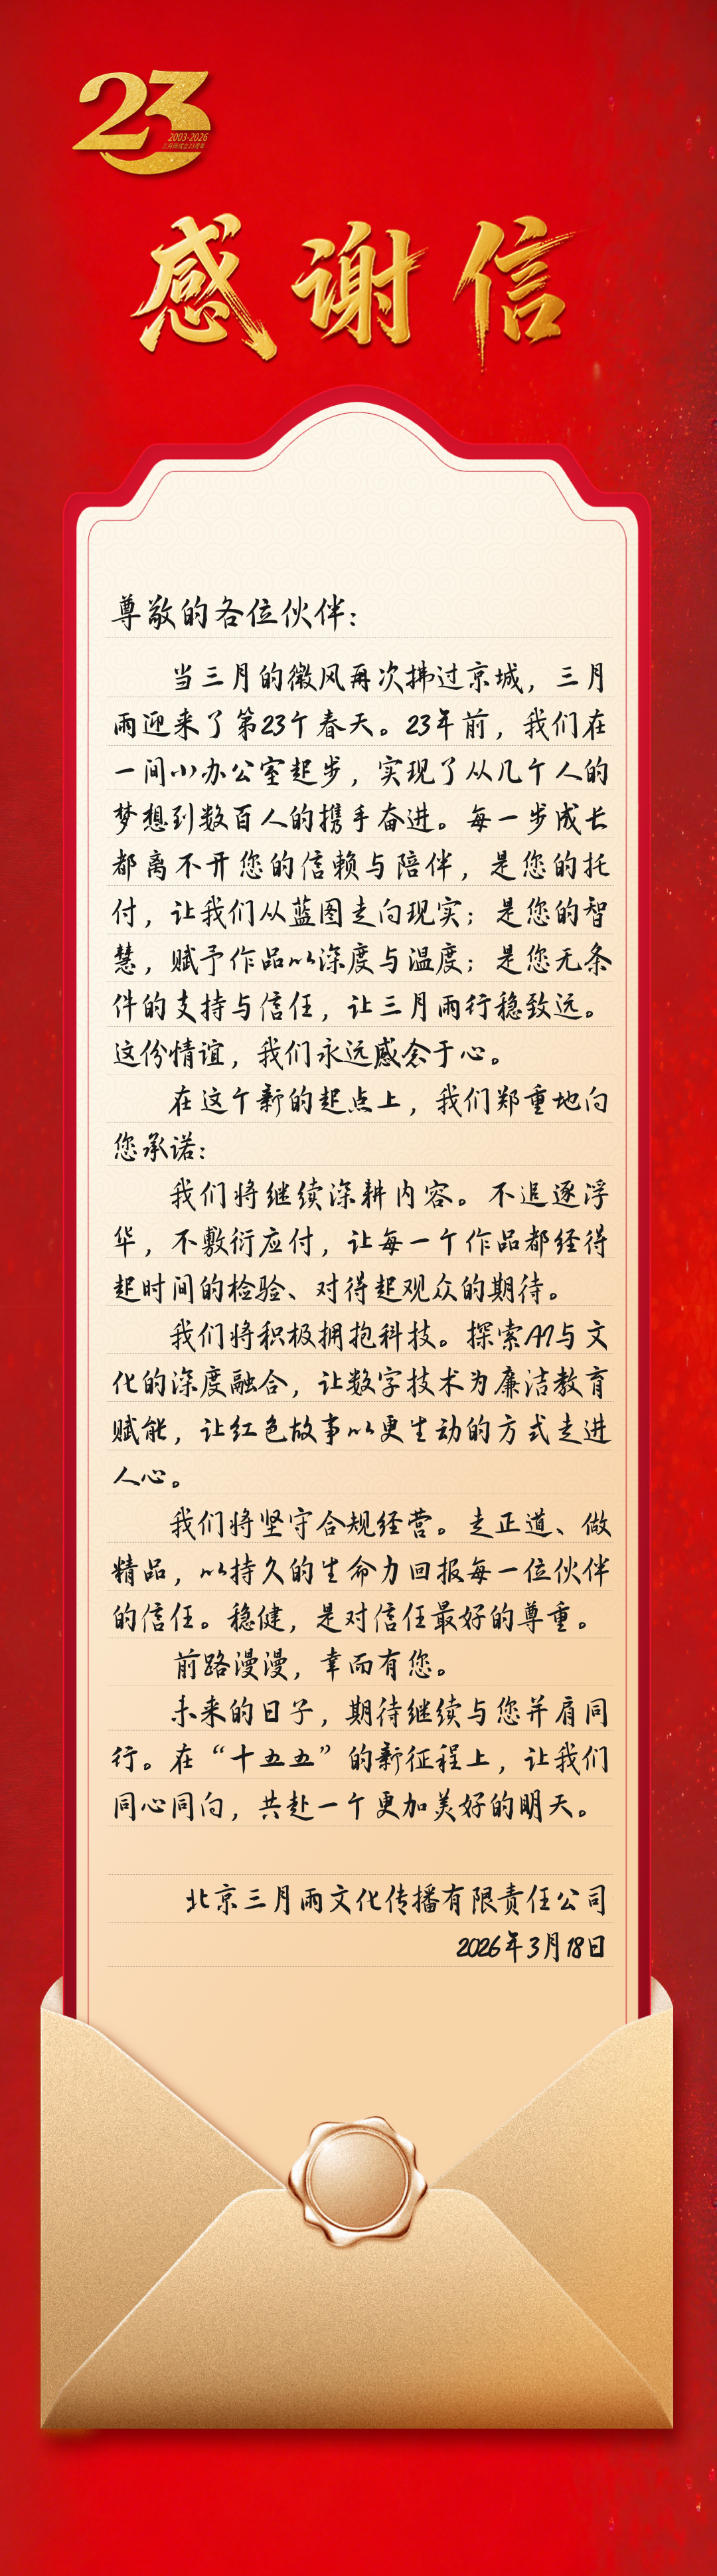 23
2003-2026
三月雨成立23周年
感谢信
尊敬的各位伙伴：
当三月的微风再次拂过京城，三月
雨迎来了第23个春天。23年前，我们在
一间小办公室起步，实现了从几个人的
梦想到数百人的携手奋进。每一步成长
都离不开您的信赖与陪伴，是您的托
付，让我们从蓝图走向现实；是您的智
慧，赋予作品以深度与温度；是您无条
件的支持与信任，让三月雨行稳致远。
这份情谊，我们永远感念于心。
在这个新的起点上，我们郑重地向
您承诺：
我们将继续深耕内容。不追逐浮
华，不敷衍应付，让每一个作品都经得
起时间的检验、对得起观众的期待。
我们将积极拥抱科技。探索AI与文
化的深度融合，让数字技术为廉洁教育
赋能，让红色故事以更生动的方式走进
人心。
我们将坚守合规经营。走正道、做
精品，以持久的生命力回报每一位伙伴
的信任。稳健，是对信任最好的尊重。
前路漫漫，幸而有您。
未来的日子，期待继续与您并肩同
行。在“十五五”的新征程上，让我们
同心同向，共赴一个更加美好的明天。
北京三月雨文化传播有限责任公司
2026年3月18日